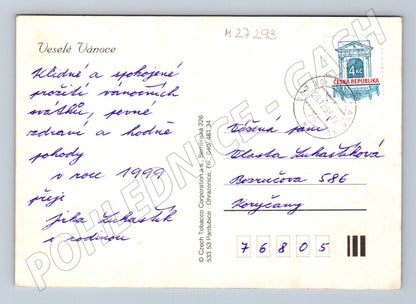 M 27 293
Veselé Vánoce
Klidné a spokojené
prožití vánočních
svátků, pevné
zdraví a hodně
pohody
v roce 1999
přeji
Jirka Lukaštík
s rodinou
© Czech Tobacco Corporation a.s., Semtínská 226
533 53 Pardubice - Ohrazenice, Tel. 040/ 481 34
4 Kč
ČESKÁ REPUBLIKA
Vážená paní
Vlasta Lukaštíková
Bezručova 586
Koryčany
7 6 8 0 5
POHLEDNICE - GACH